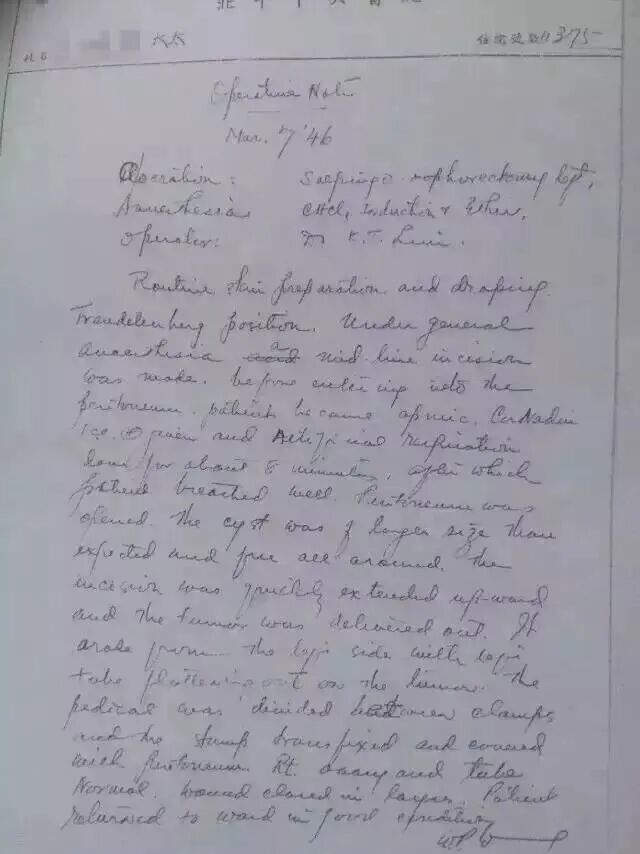 太太 住院號數 11375
Operative Note
Mar. 7 '46
Operation: Salpingo-oophorectomy left,
Anaesthesia CHCl3 Induction & Ether,
Operator: Dr K.T. Lim.
Routine skin preparation and draping.
Trendelenberg position. Under general
anaesthesia a mid-line incision
was made. before entering into the
peritoneum. patient became apnic.
1cc. given and Artificial respiration
done for about 8 minutes, after which
patient breathed well. Peritoneum was
opened. The cyst was of larger size than
expected and free all around. The
incision was quickly extended upward
and the tumor was delivered out. It
arose from the left side with left
tube flattening out on the tumor. The
pedical was divided between clamps
and the stump transfixed and covered
with peritoneum. Rt. ovary and tube
Normal. Wound closed in layers. Patient
returned to ward in good condition